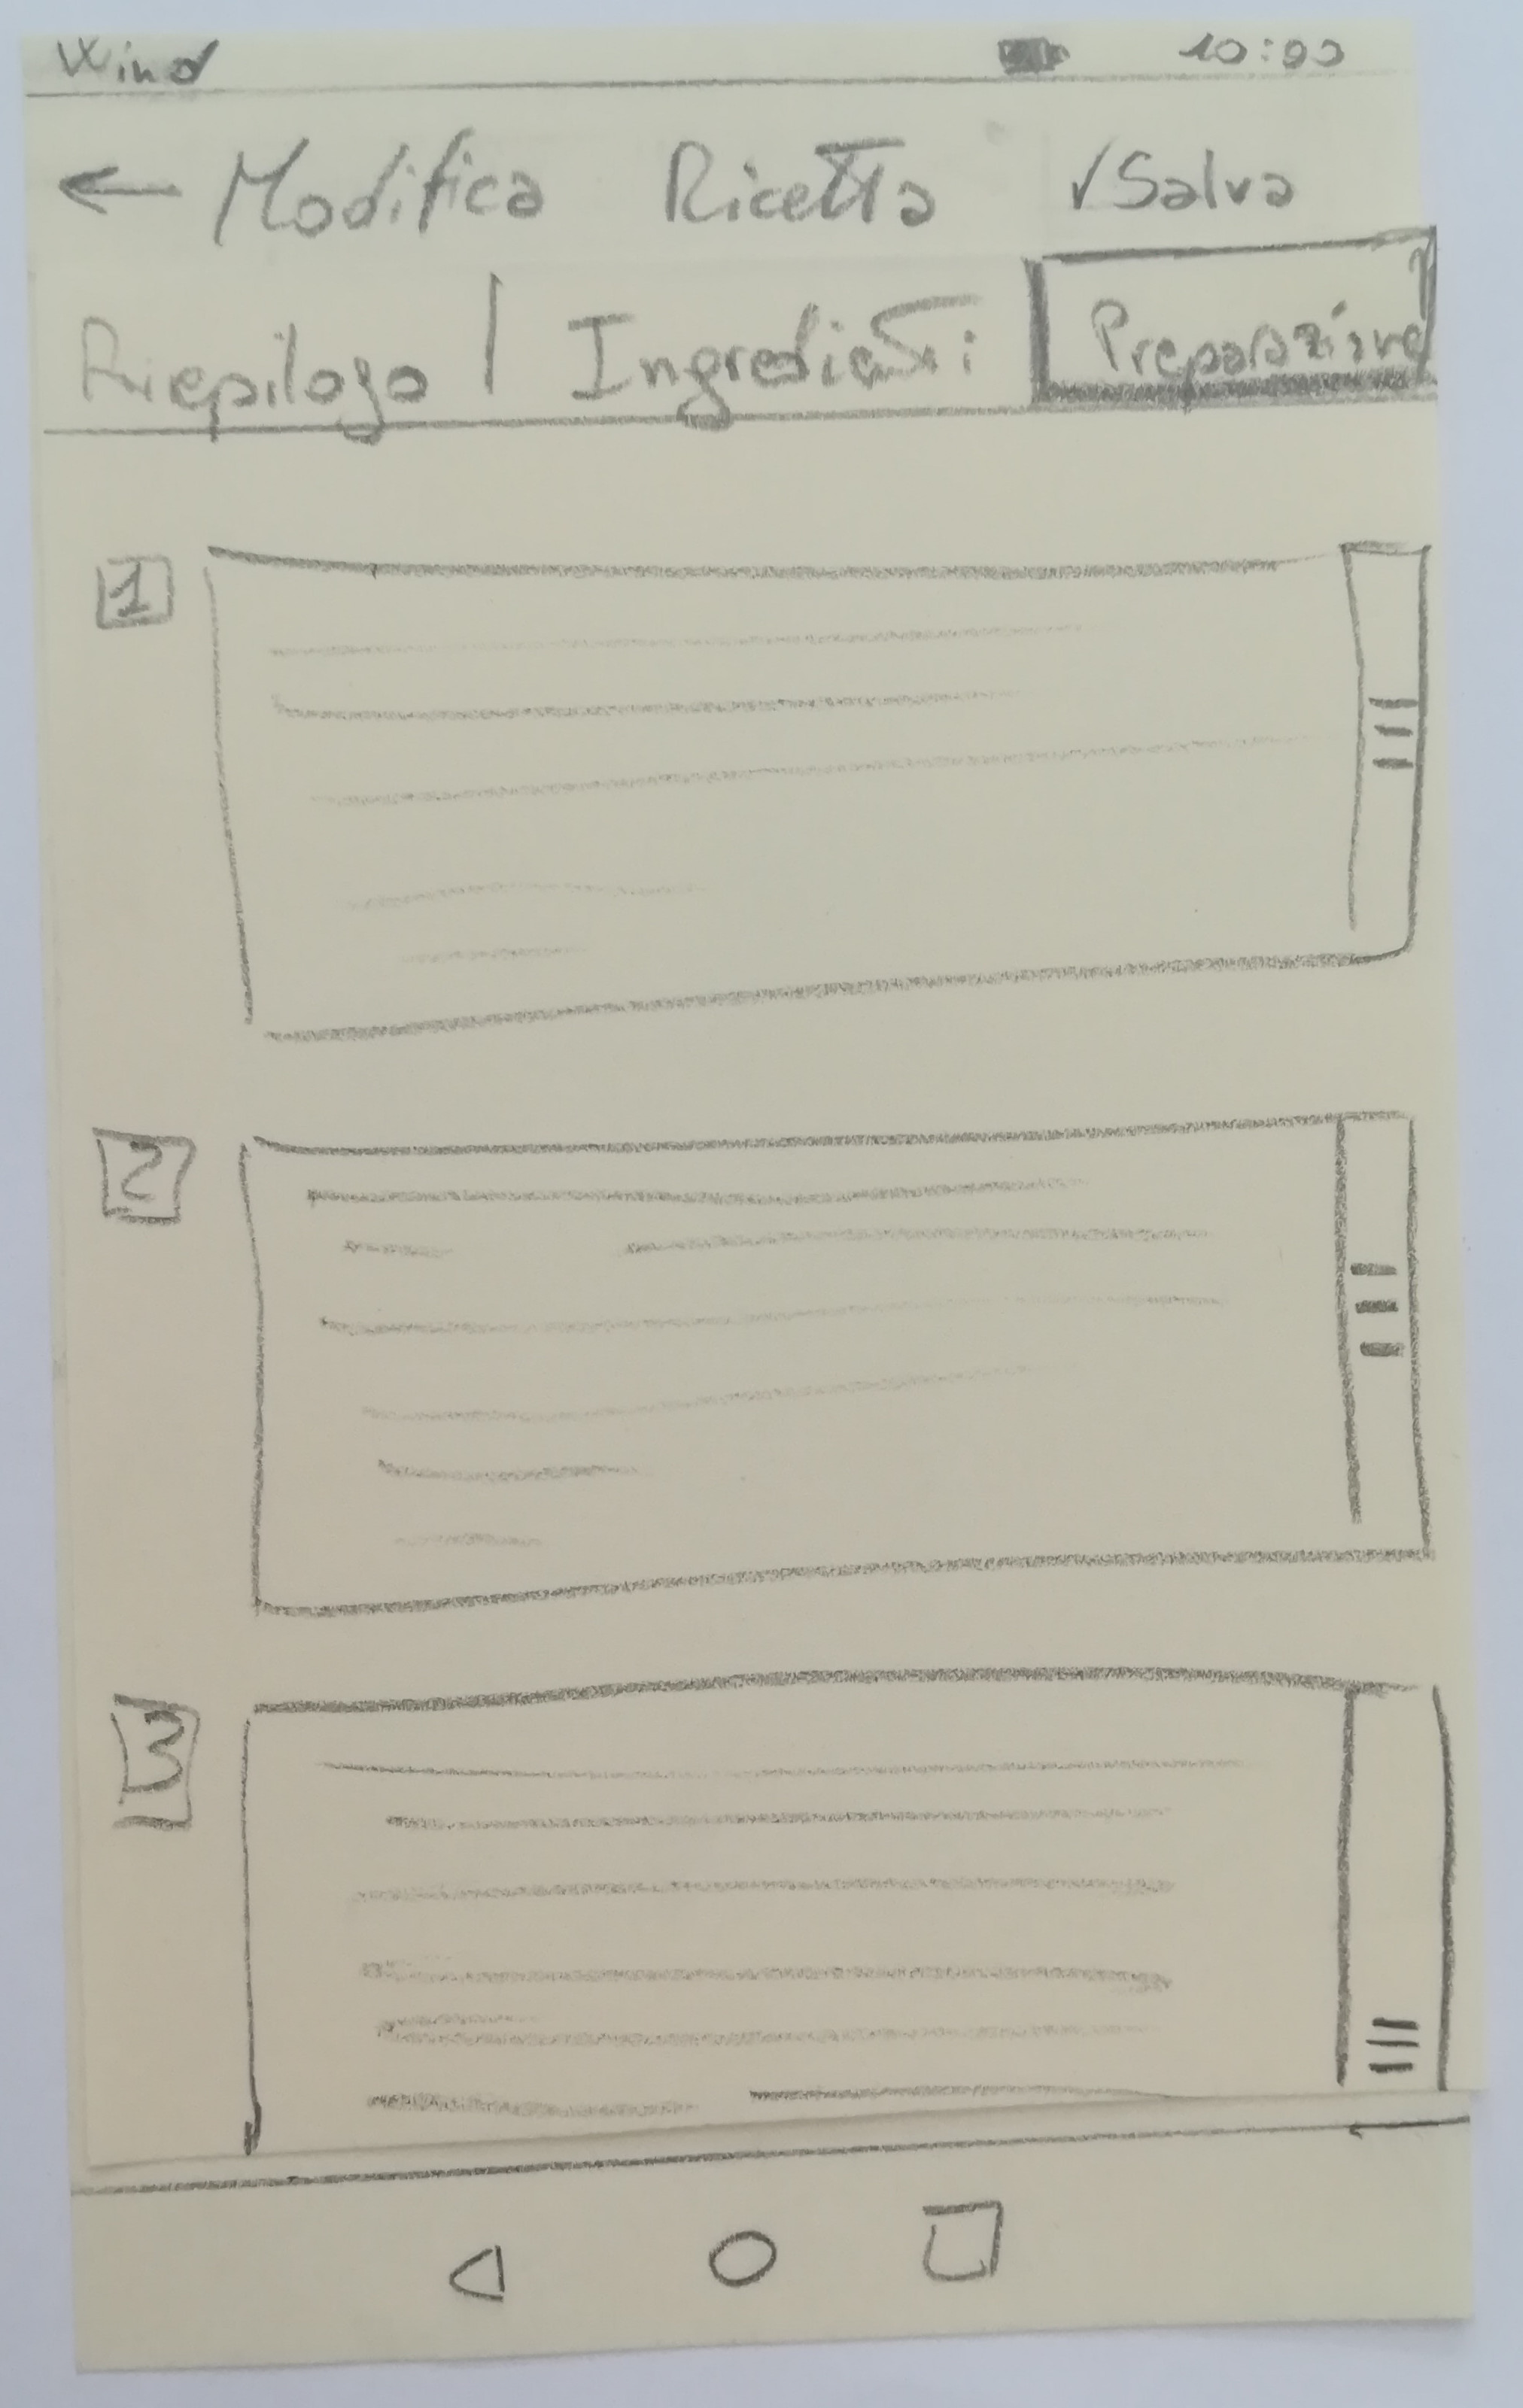 Wind 10:00
← Modifica Ricetta √Salva
Riepilogo | Ingredienti Preparazione
1
2
3